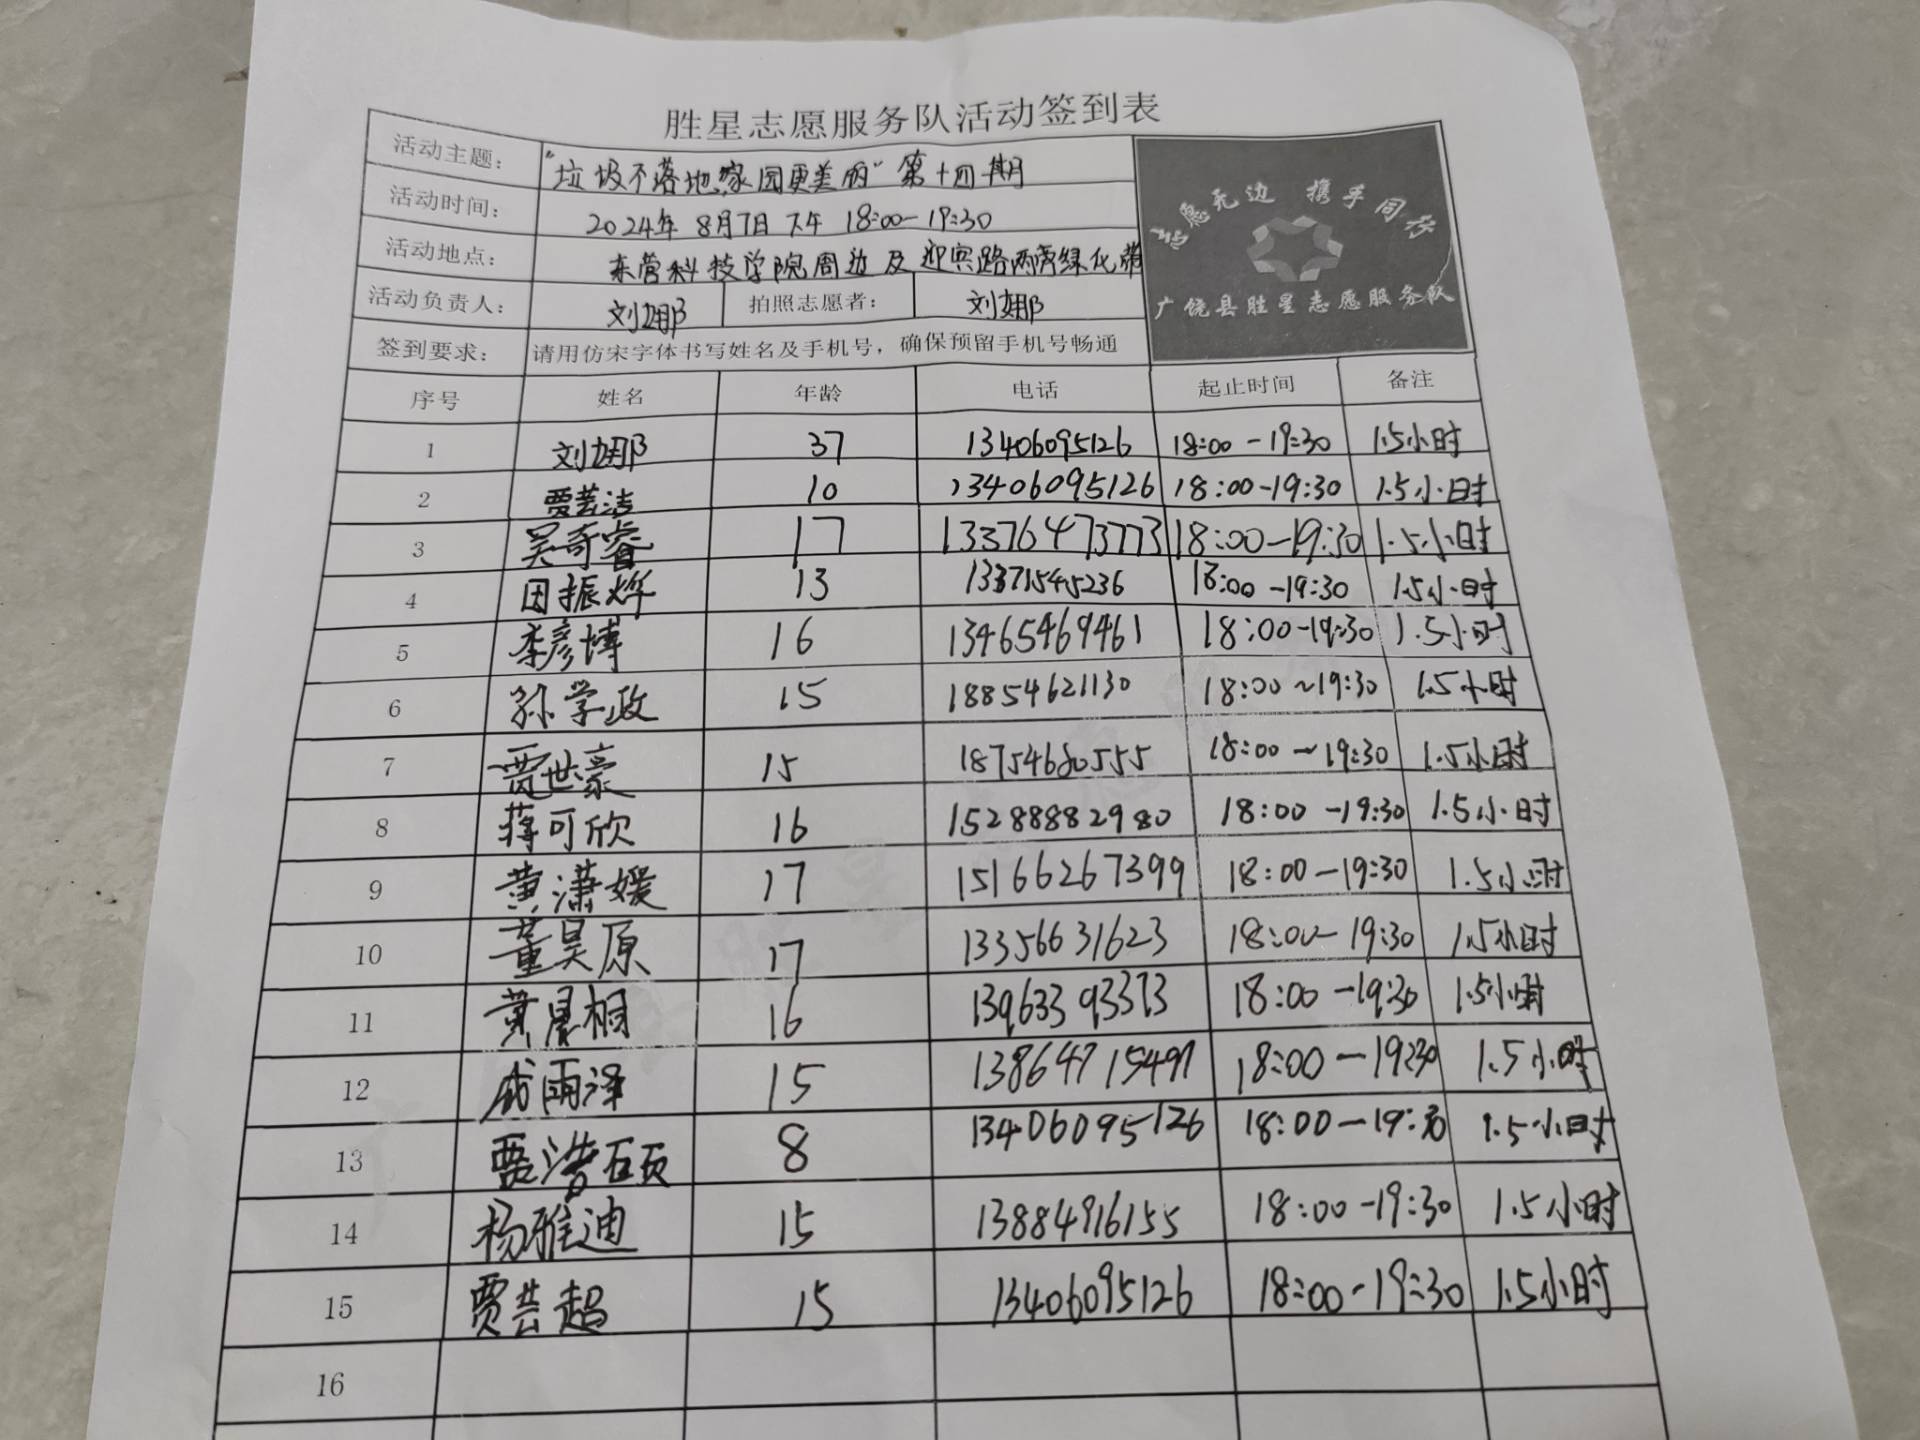 胜星志愿服务队活动签到表
活动主题： "垃圾不落地，家园更美丽"第十四期
志愿无边 携手同行
活动时间： 2024年8月7日下午 18:00-19:30
活动地点： 东营科技学院周边及迎宾路两旁绿化带
广饶县胜星志愿服务队
活动负责人： 刘娜 拍照志愿者： 刘娜
签到要求： 请用仿宋字体书写姓名及手机号，确保预留手机号畅通
序号 姓名 年龄 电话 起止时间 备注
1 刘娜 37 13406095126 18:00-19:30 1.5小时
2 贾芸洁 10 13406095126 18:00-19:30 1.5小时
3 吴奇睿 17 13376473773 18:00-19:30 1.5小时
4 田振烨 13 13371545236 18:00-19:30 1.5小时
5 李彦博 16 13465469461 18:00-19:30 1.5小时
6 孙学政 15 18854621130 18:00~19:30 1.5小时
7 贾世豪 15 18754680555 18:00~19:30 1.5小时
8 蒋可欣 16 15288882980 18:00-19:30 1.5小时
9 黄潇媛 17 15166267399 18:00-19:30 1.5小时
10 董昊原 17 13356631623 18:00-19:30 1.5小时
11 黄晨桐 16 13963393373 18:00-19:30 1.5小时
12 成雨泽 15 13864715497 18:00-19:30 1.5小时
13 贾浩硕 8 13406095126 18:00-19:30 1.5小时
14 杨雅迪 15 13884916155 18:00-19:30 1.5小时
15 贾芸超 15 13406095126 18:00-19:30 1.5小时
16